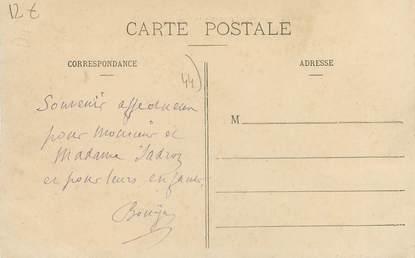 12 €
CARTE POSTALE
CORRESPONDANCE
ADRESSE
(44)
Souvenir affectueux
pour Monsieur et
Madame
et pour leurs enfants
M